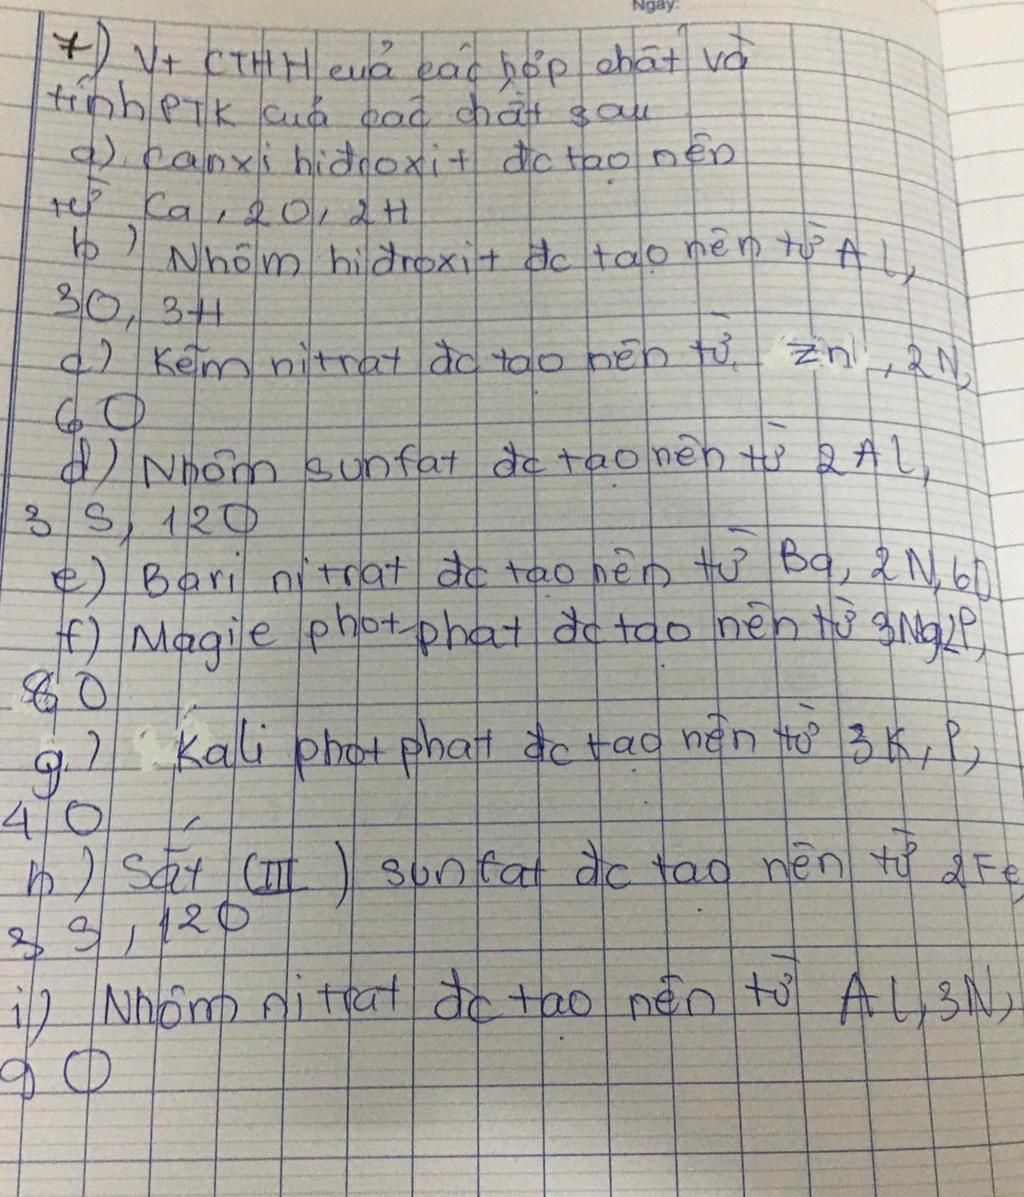 Ngày:
7) Vt CTHH của các hợp chất và
tính PTK của các chất sau
a) Canxi hiđroxit đc tạo nên
từ Ca, 2O, 2H
b) Nhôm hiđroxit đc tạo nên từ Al,
3O, 3H
c) Kẽm nitrat đc tạo nên từ Zn, 2N,
6O
d) Nhôm sunfat đc tạo nên từ 2Al,
3S, 12O
e) Bari nitrat đc tạo nên từ Ba, 2N, 6O
f) Magie photphat đc tạo nên từ 3Mg, 2P,
8O
g) Kali photphat đc tạo nên từ 3K, P,
4O
h) Sắt (III) sunfat đc tạo nên từ 2Fe,
3S, 12O
i) Nhôm nitrat đc tạo nên từ Al, 3N,
9O